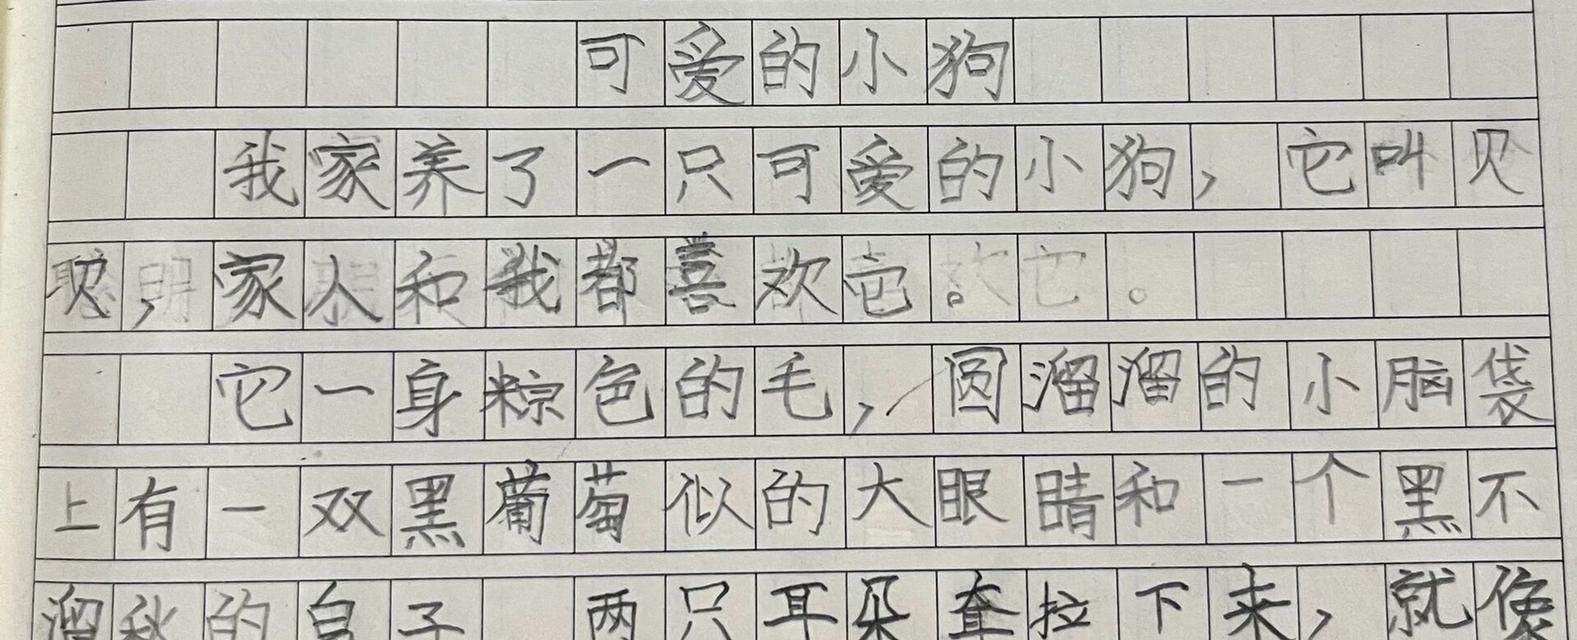 可爱的小狗
我家养了一只可爱的小狗，它叫贝
贝，家人和我都喜欢它。
它一身粽色的毛，圆溜溜的小脑袋
上有一双黑葡萄似的大眼睛和一个黑不
溜秋的鼻子 两只耳朵耷拉下来，就像